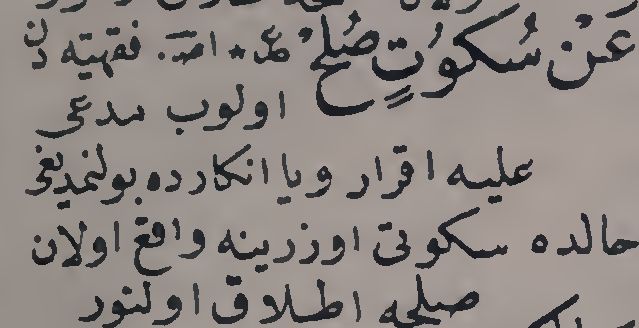 عَنْ سُكوُتٍ صُلْح ٭ فقهيّه دن
اولوب مدعى
عليه اقرار ويا انكارده بولنمديغى
حالده سكوتى اوزرينه واقع اولان
صلحه اطلاق اولنور